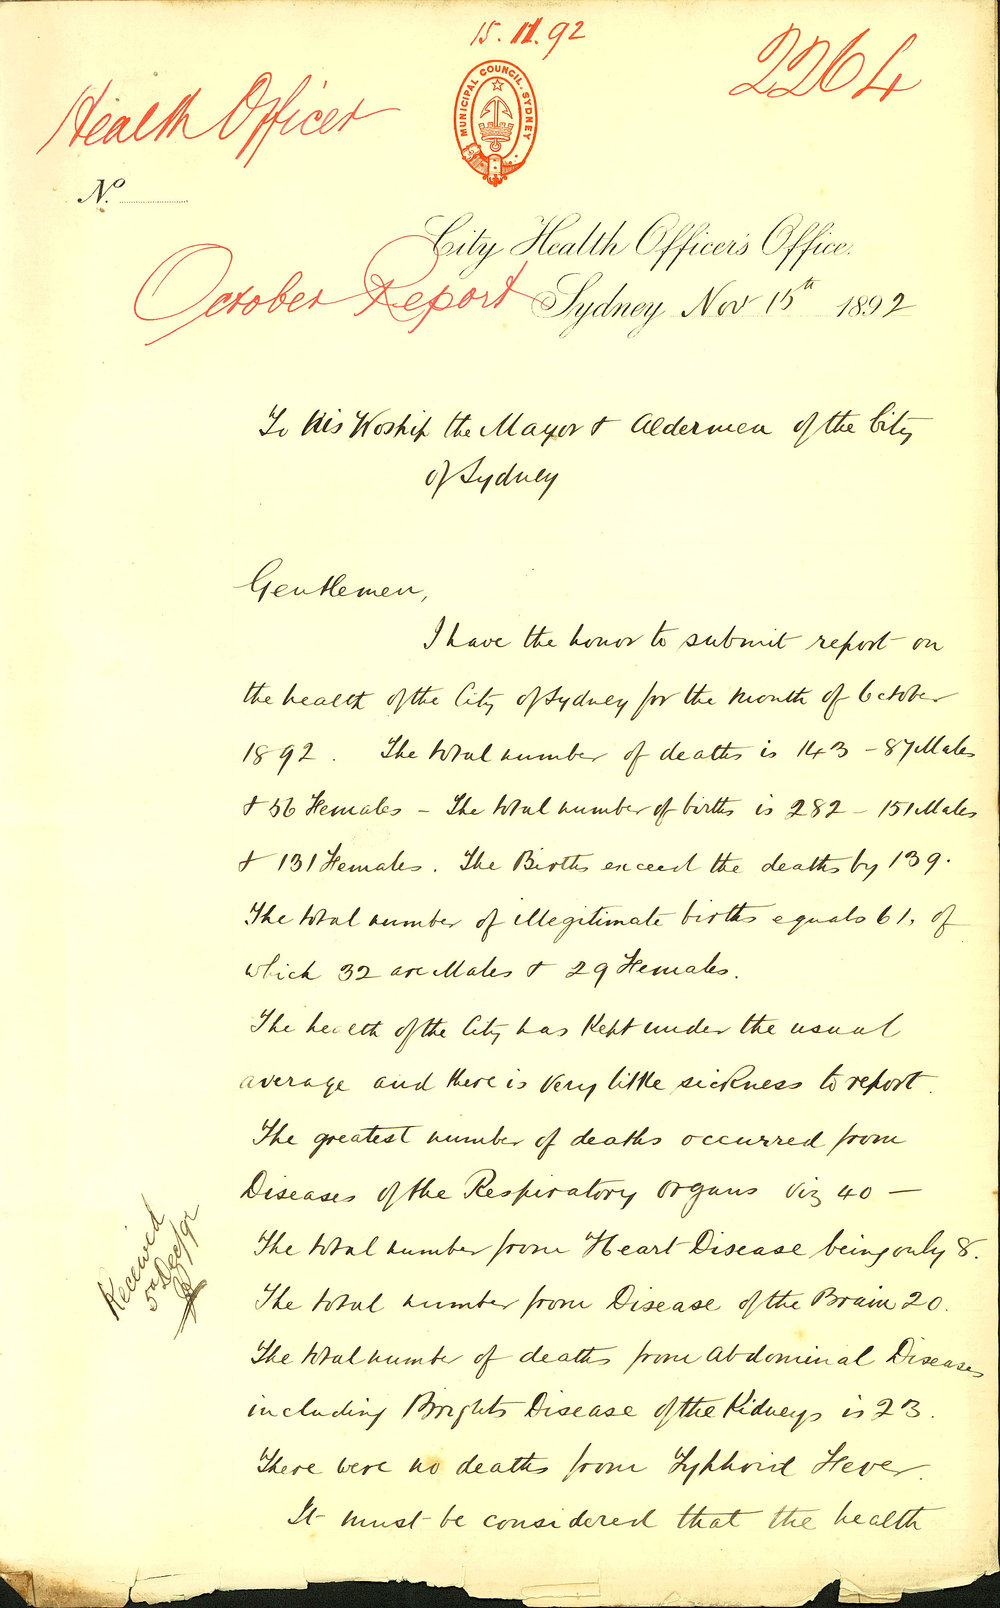 15.11.92
2264
Health Officer
MUNICIPAL COUNCIL. SYDNEY
No.
City Health Officer's Office.
October Report
Sydney Nov 15th 1892
To His Woship the Mayor & Aldermen of the City
of Sydney
Gentlemen,
I have the honor to submit report on
the health of the City of Sydney for the month of October
1892. The total number of deaths is 143 - 87 Males
& 56 Females - The total number of births is 282 - 151 Males
& 131 Females. The Births exceed the deaths by 139.
The total number of illegitimate births equals 61, of
which 32 are Males & 29 Females.
The health of the City has kept under the usual
average and there is very little sickness to report.
The greatest number of deaths occurred from
Diseases of the Respiratory organs viz 40 -
The total number from Heart Disease being only 8.
The total number from Disease of the Brain 20.
The total number of deaths from Abdominal Diseases
including Brights Disease of the Kidneys is 23.
There were no deaths from Typhoid Fever.
It must be considered that the health
Received
5th Dec/92